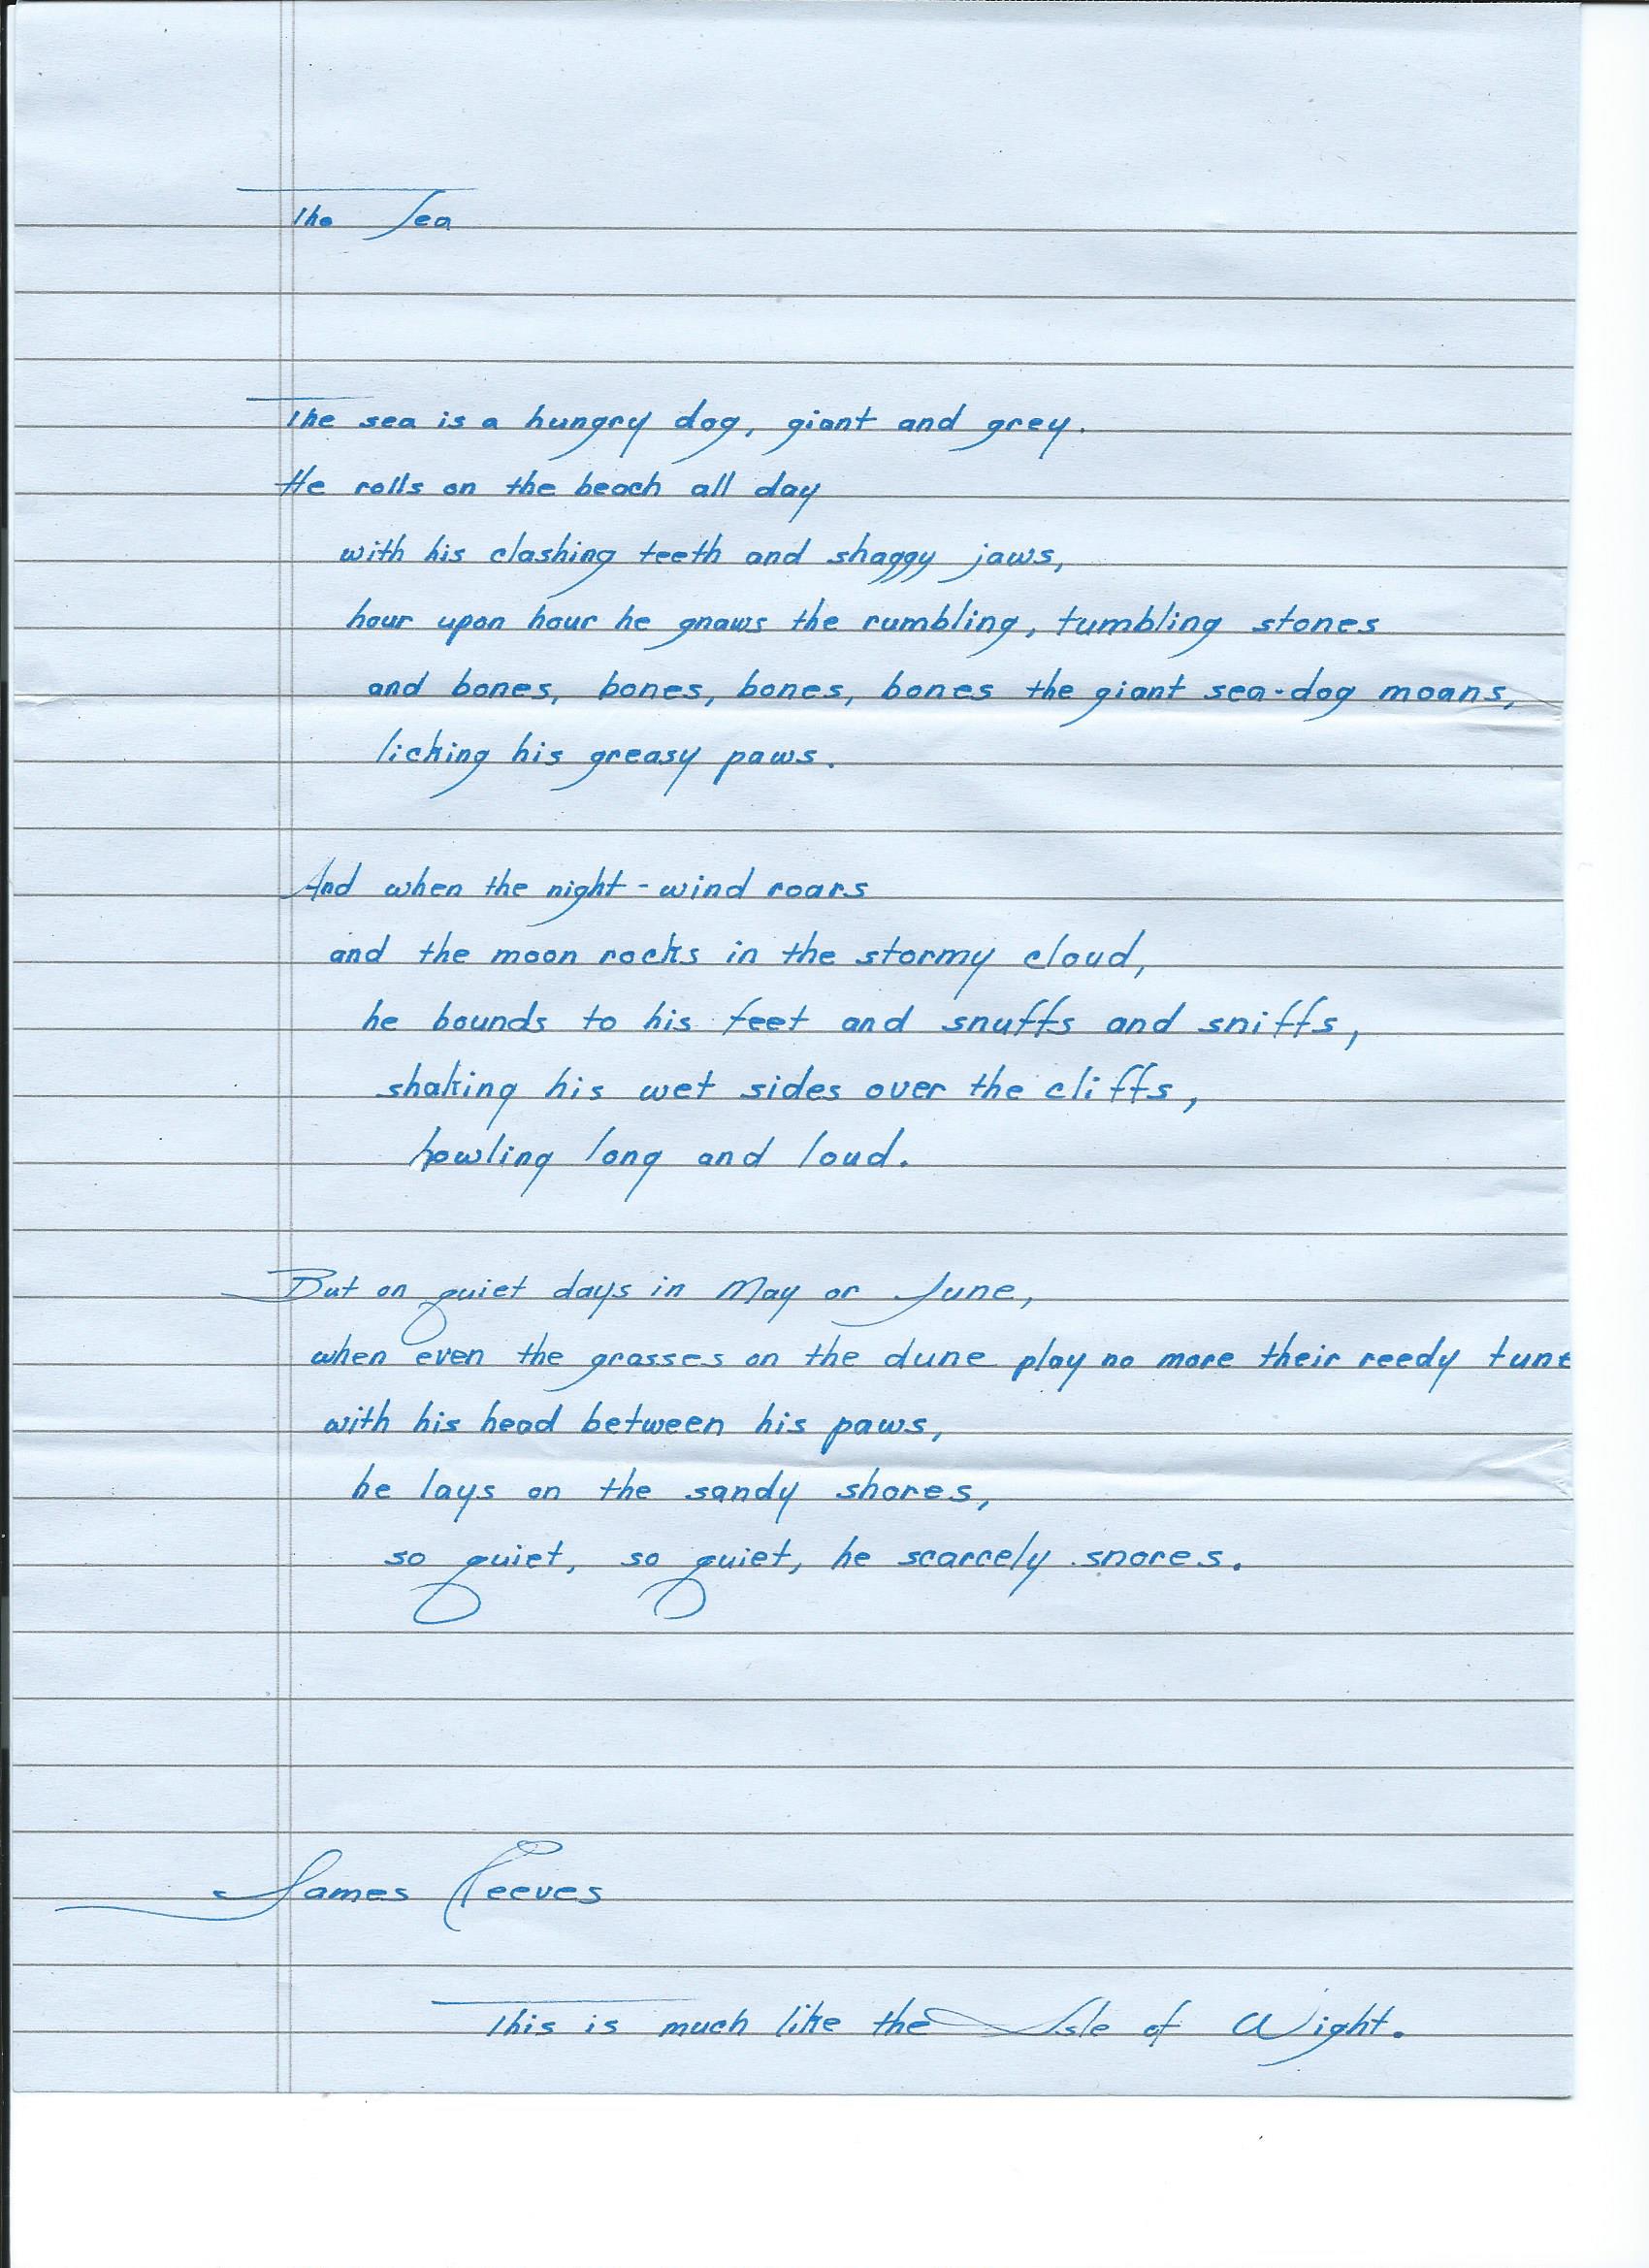 The Sea
The sea is a hungry dog, giant and grey.
He rolls on the beach all day
with his clashing teeth and shaggy jaws,
hour upon hour he gnaws the rumbling, tumbling stones
and bones, bones, bones, bones the giant sea-dog moans,
licking his greasy paws.
And when the night-wind roars
and the moon rocks in the stormy cloud,
he bounds to his feet and snuffs and sniffs,
shaking his wet sides over the cliffs,
howling long and loud.
But on quiet days in May or June,
when even the grasses on the dune play no more their reedy tune
with his head between his paws,
he lays on the sandy shores,
so quiet, so quiet, he scarcely snores.
James Reeves
This is much like the Isle of Wight.